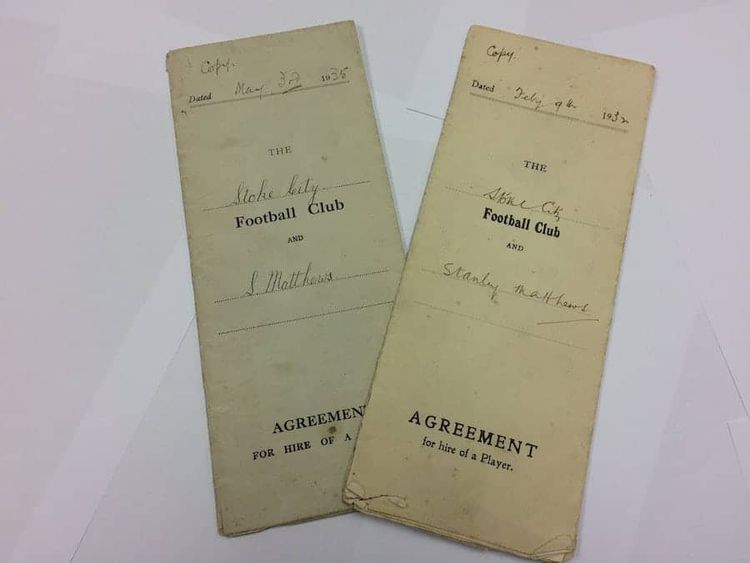 Copy.
Dated May 3rd 1935
THE
Stoke City
Football Club
AND
S. Matthews
AGREEMEN
FOR HIRE OF A
Copy.
Dated Feby 9th 1932
THE
Stoke City
Football Club
AND
Stanley Matthews
AGREEMENT
for hire of a Player.